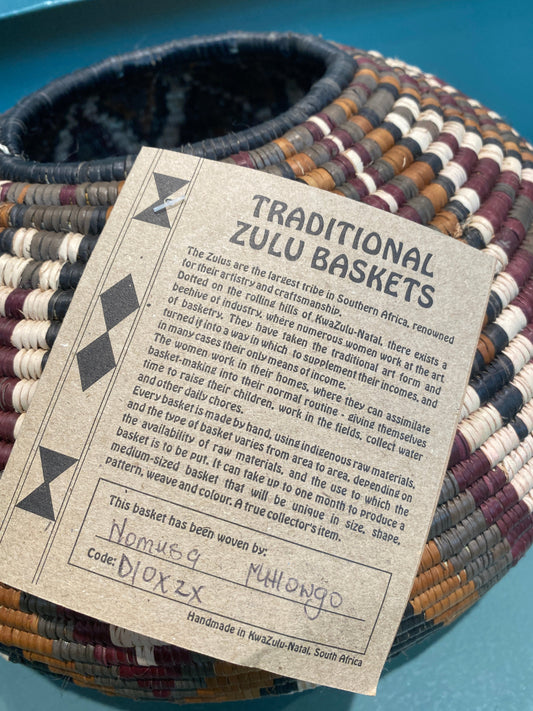 TRADITIONAL
ZULU BASKETS
The Zulus are the largest tribe in Southern Africa, renowned
for their artistry and craftsmanship.
Dotted on the rolling hills of KwaZulu-Natal, there exists a
beehive of industry, where numerous women work at the art
of basketry. They have taken the traditional art form and
turned it into a way in which to supplement their incomes, and
in many cases their only means of income.
The women work in their homes, where they can assimilate
basket-making into their normal routine - giving themselves
time to raise their children, work in the fields, collect water
and other daily chores.
Every basket is made by hand, using indigenous raw materials,
and the type of basket varies from area to area, depending on
the availability of raw materials, and the use to which the
basket is to be put. It can take up to one month to produce a
medium-sized basket that will be unique in size, shape,
pattern, weave and colour. A true collector's item.
This basket has been woven by:
Nomusa
Code: D10XZX
Handmade in KwaZulu-Natal, South Africa